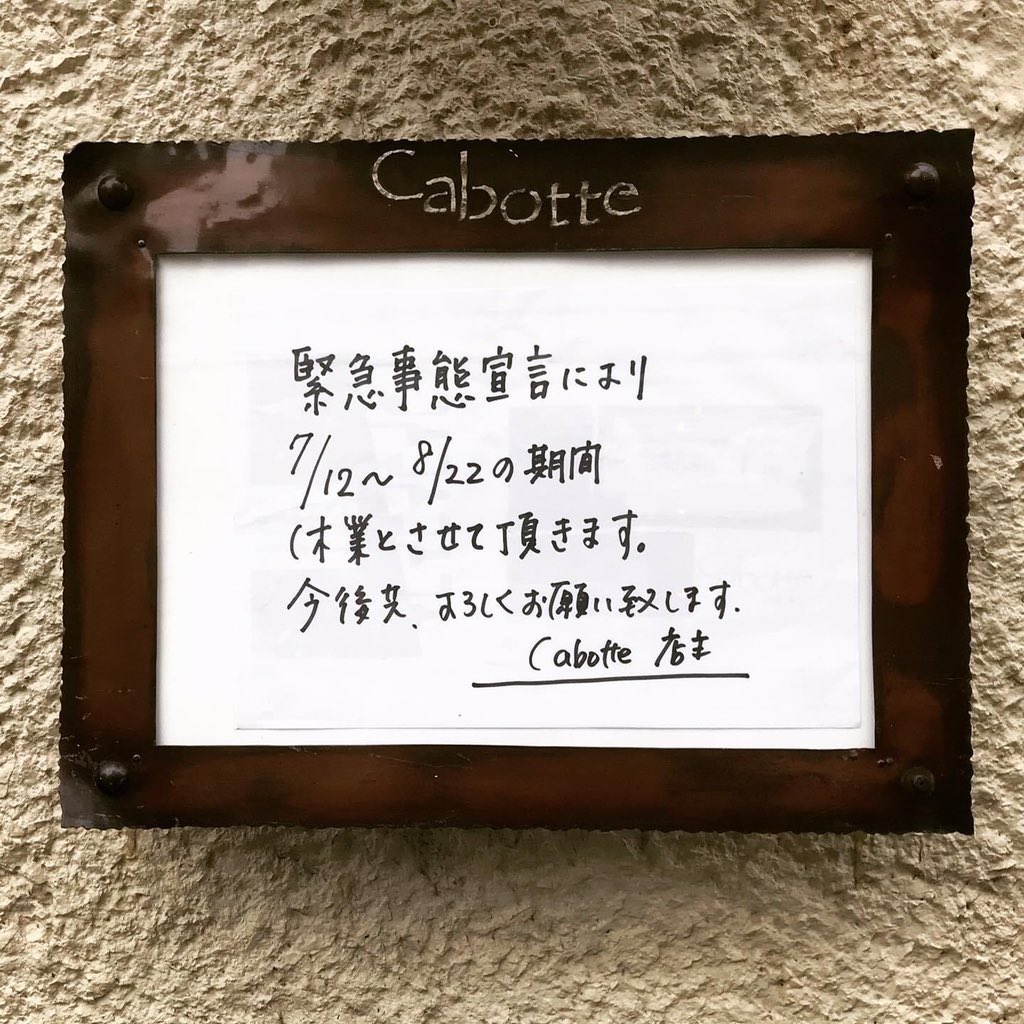 Cabotte
緊急事態宣言により
7/12〜8/22の期間
休業とさせて頂きます。
今後共、よろしくお願い致します.
Cabotte 店主